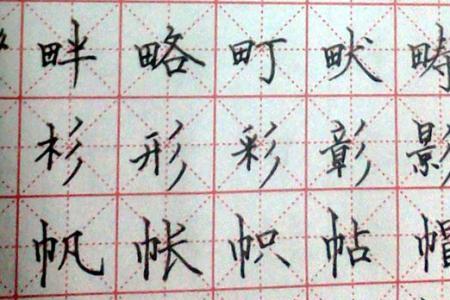 畔略町畎畴
杉形彩彰影
帆帐帜帖帽